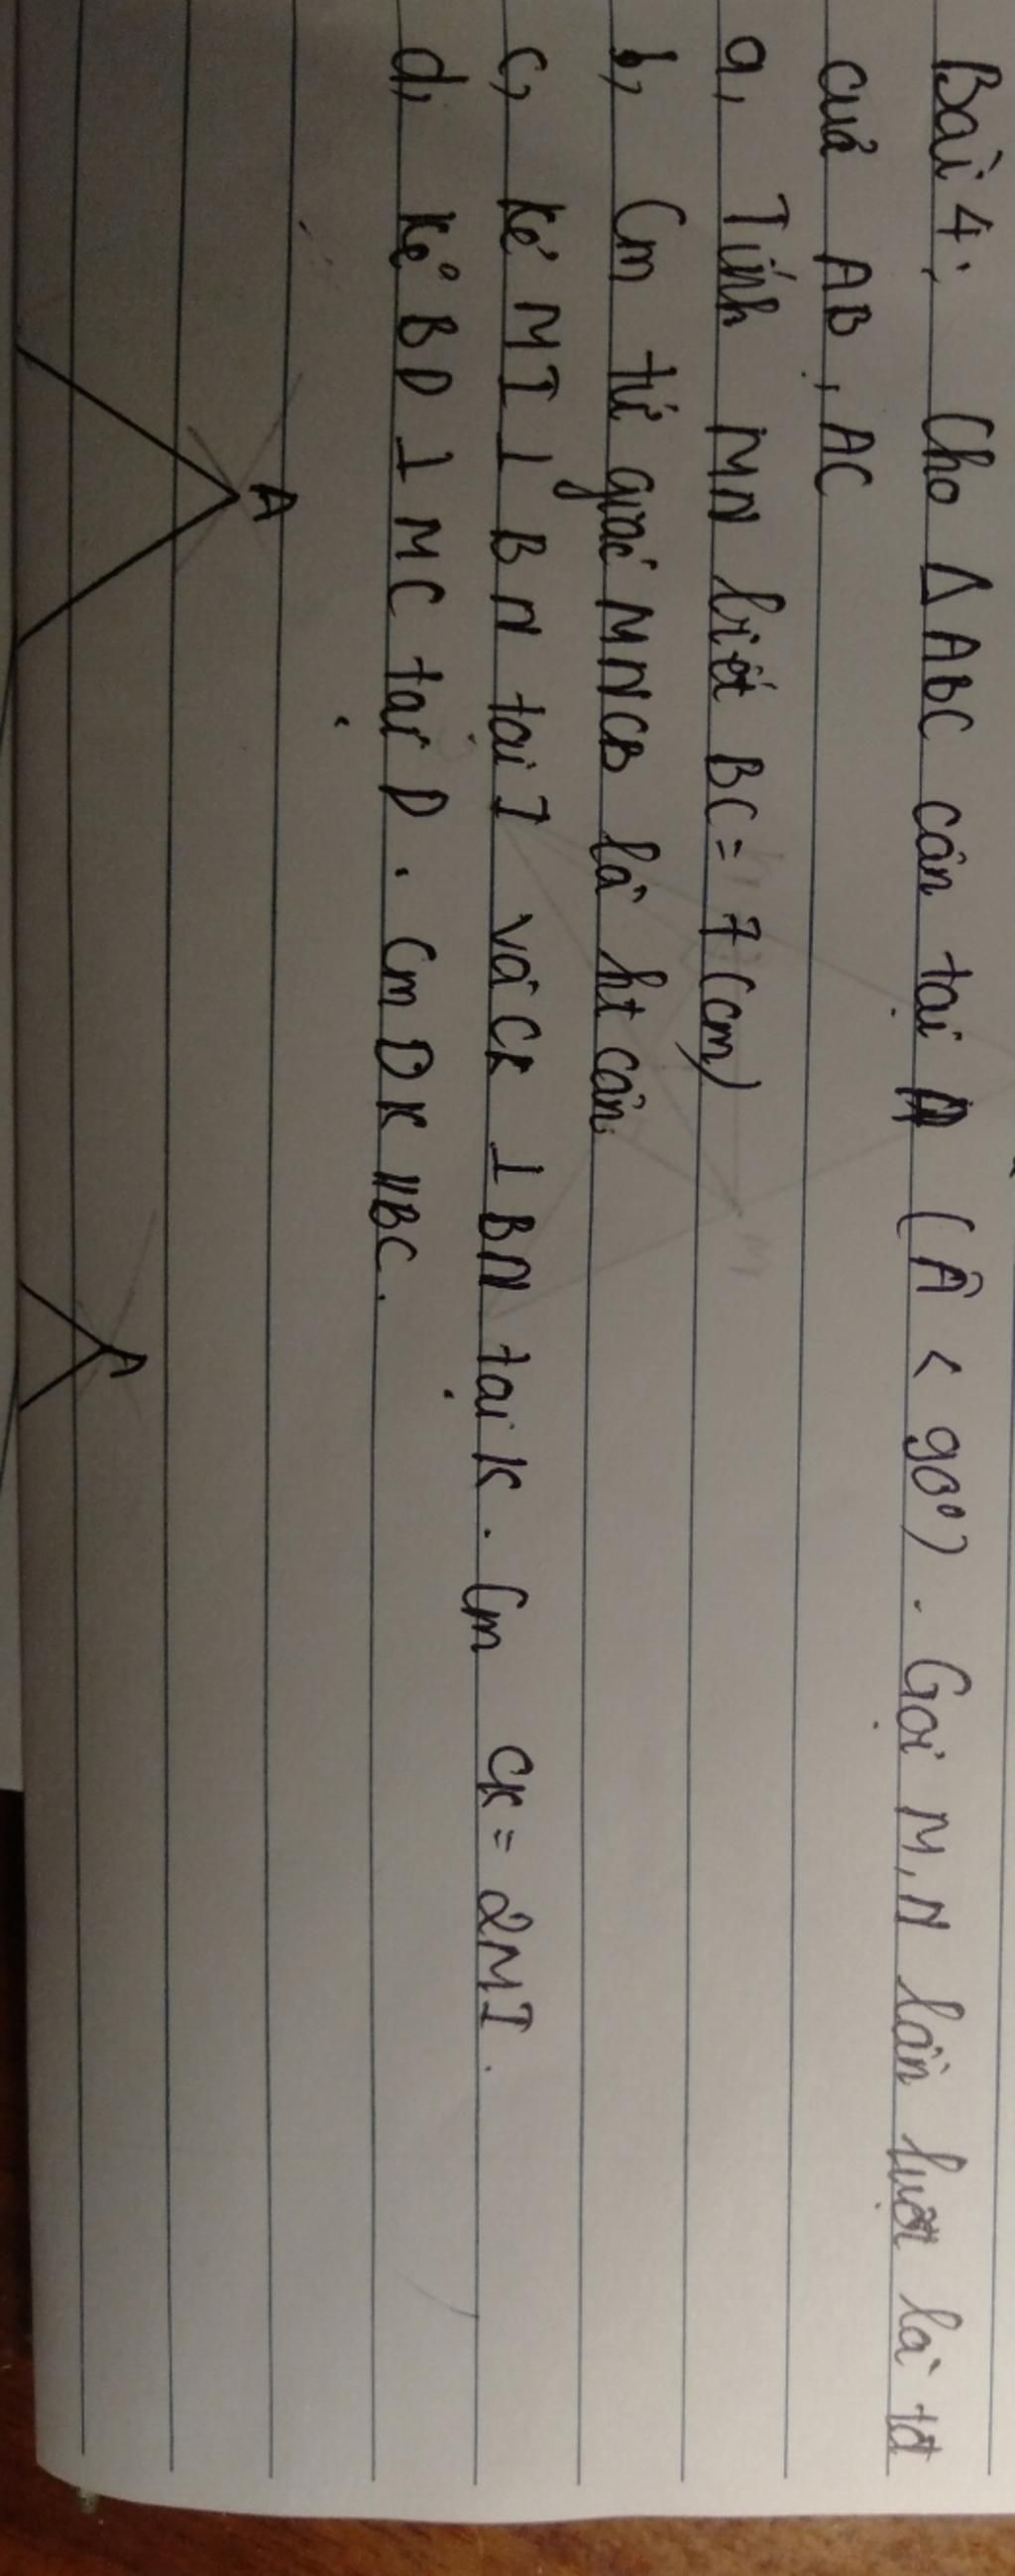 Bài 4: Cho Δ ABC cân tại A (Â < 90⁰). Gọi M, N lần lượt là tđ
của AB, AC
a, Tính MN biết BC = 7 (cm)
b, Cm tứ giác MNCB là ht cân
c, Kẻ MI ⊥ BN tại I và CK ⊥ BN tại K. Cm CK = 2MI.
d, Kẻ BD ⊥ MC tại D. Cm DK // BC.
A
A